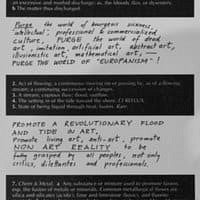 an excessive and morbid discharge: as, the bloody flux, or dysentery.
b The matter thus discharged.
Purge the world of bourgeois sickness,
"intellectual", professional & commercialized
culture, PURGE the world of dead
art, imitation, artificial art, abstract art,
illusionistic art, mathematical art, —
PURGE THE WORLD OF "EUROPANISM"!
2. Act of flowing: a continuous moving on or passing by, as of a flowing
stream; a continuing succession of changes.
3. A stream; copious flow; flood; outflow.
4. The setting in of the tide toward the shore. Cf REFLUX.
5. State of being liquid through heat; fusion. Rare.
PROMOTE A REVOLUTIONARY FLOOD
AND TIDE IN ART,
Promote living art, anti-art, promote
NON ART REALITY to be
fully grasped by all peoples, not only
critics, dilettantes and professionals.
7. Chem & Metal. a Any substance or mixture used to promote fusion,
esp. the fusion of metals or minerals. Common metallurgical fluxes are
silica and silicates (acidic), lime and limestone (basic), and fluorite